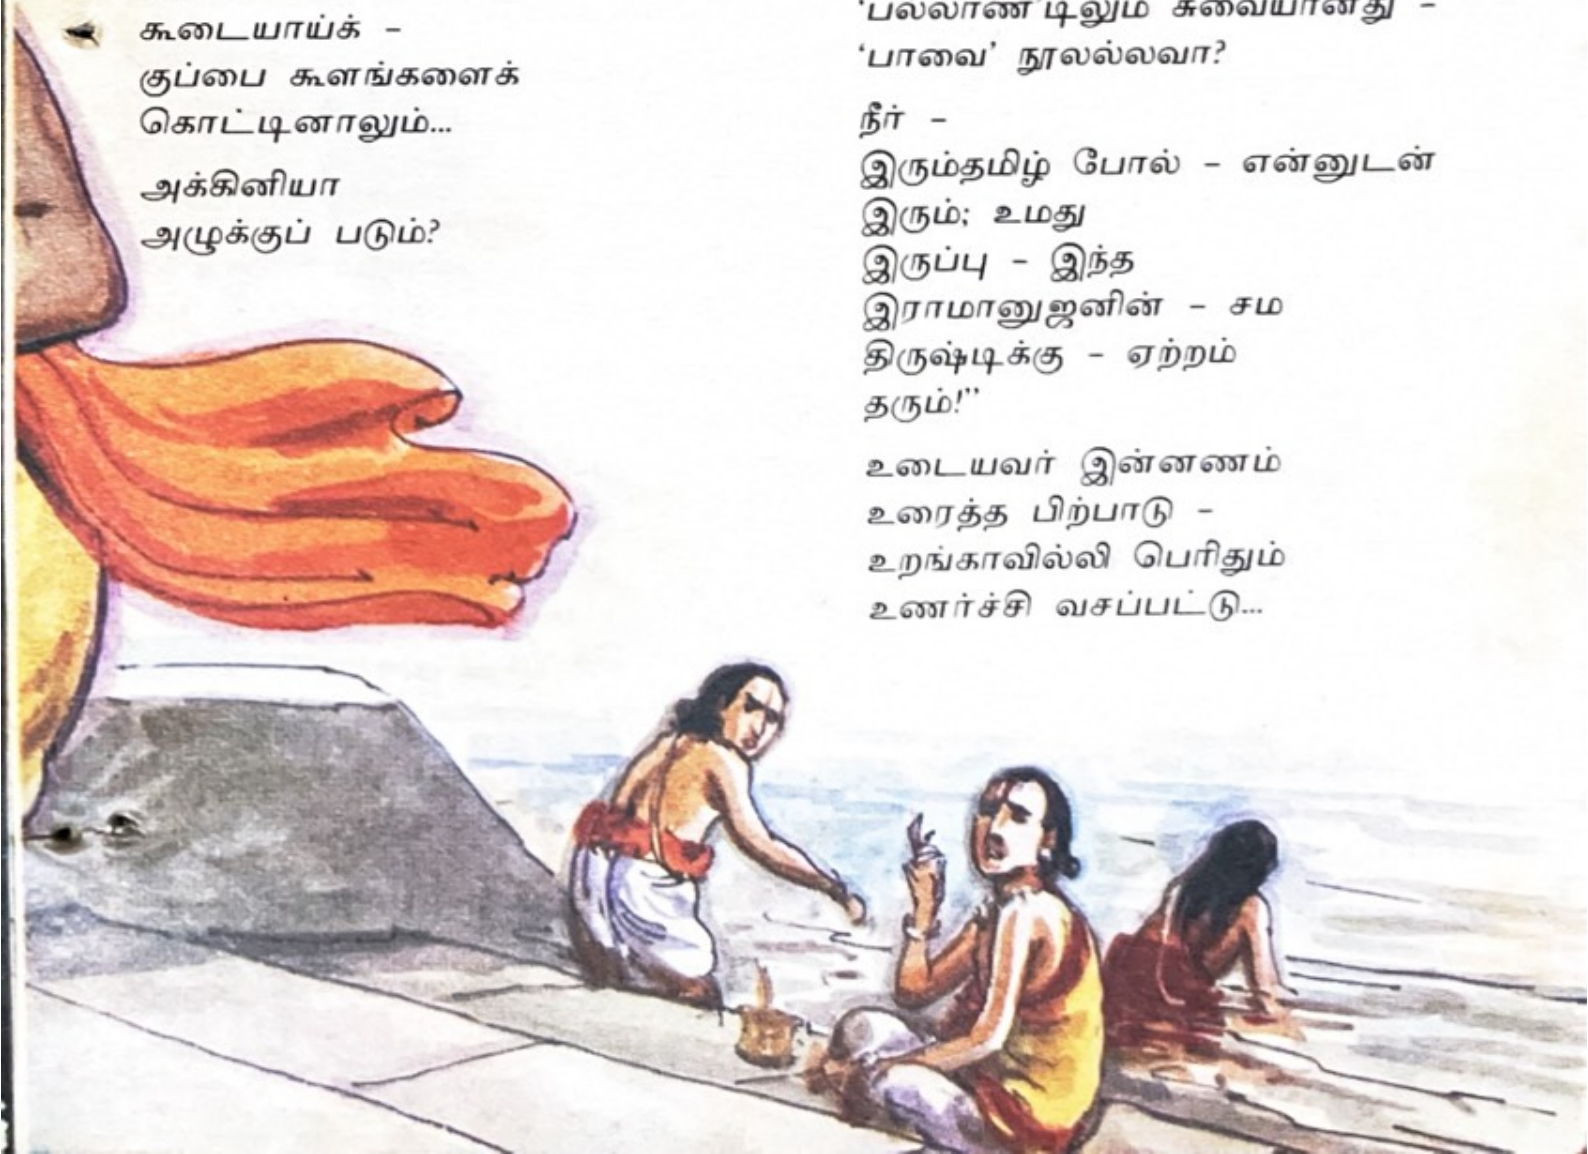 கூடையாய்க் –
குப்பை கூளங்களைக்
கொட்டினாலும்...
அக்கினியா
அழுக்குப் படும்?
‘பல்லாண்’டிலும் சுவையானது –
‘பாவை’ நூலல்லவா?
நீர் –
இரும்தமிழ் போல் – என்னுடன்
இரும்; உமது
இருப்பு – இந்த
இராமானுஜனின் – சம
திருஷ்டிக்கு – ஏற்றம்
தரும்!”
உடையவர் இன்னணம்
உரைத்த பிற்பாடு –
உறங்காவில்லி பெரிதும்
உணர்ச்சி வசப்பட்டு...